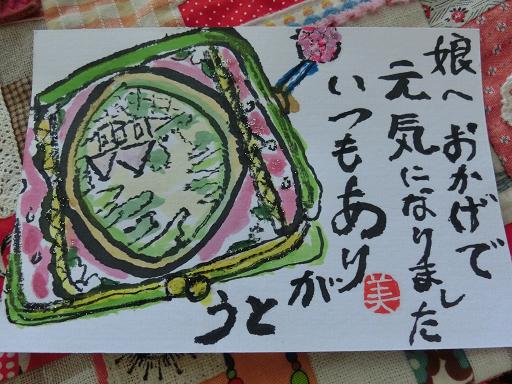 娘へおかげで
元気になりました
いつもあり
がとう
美